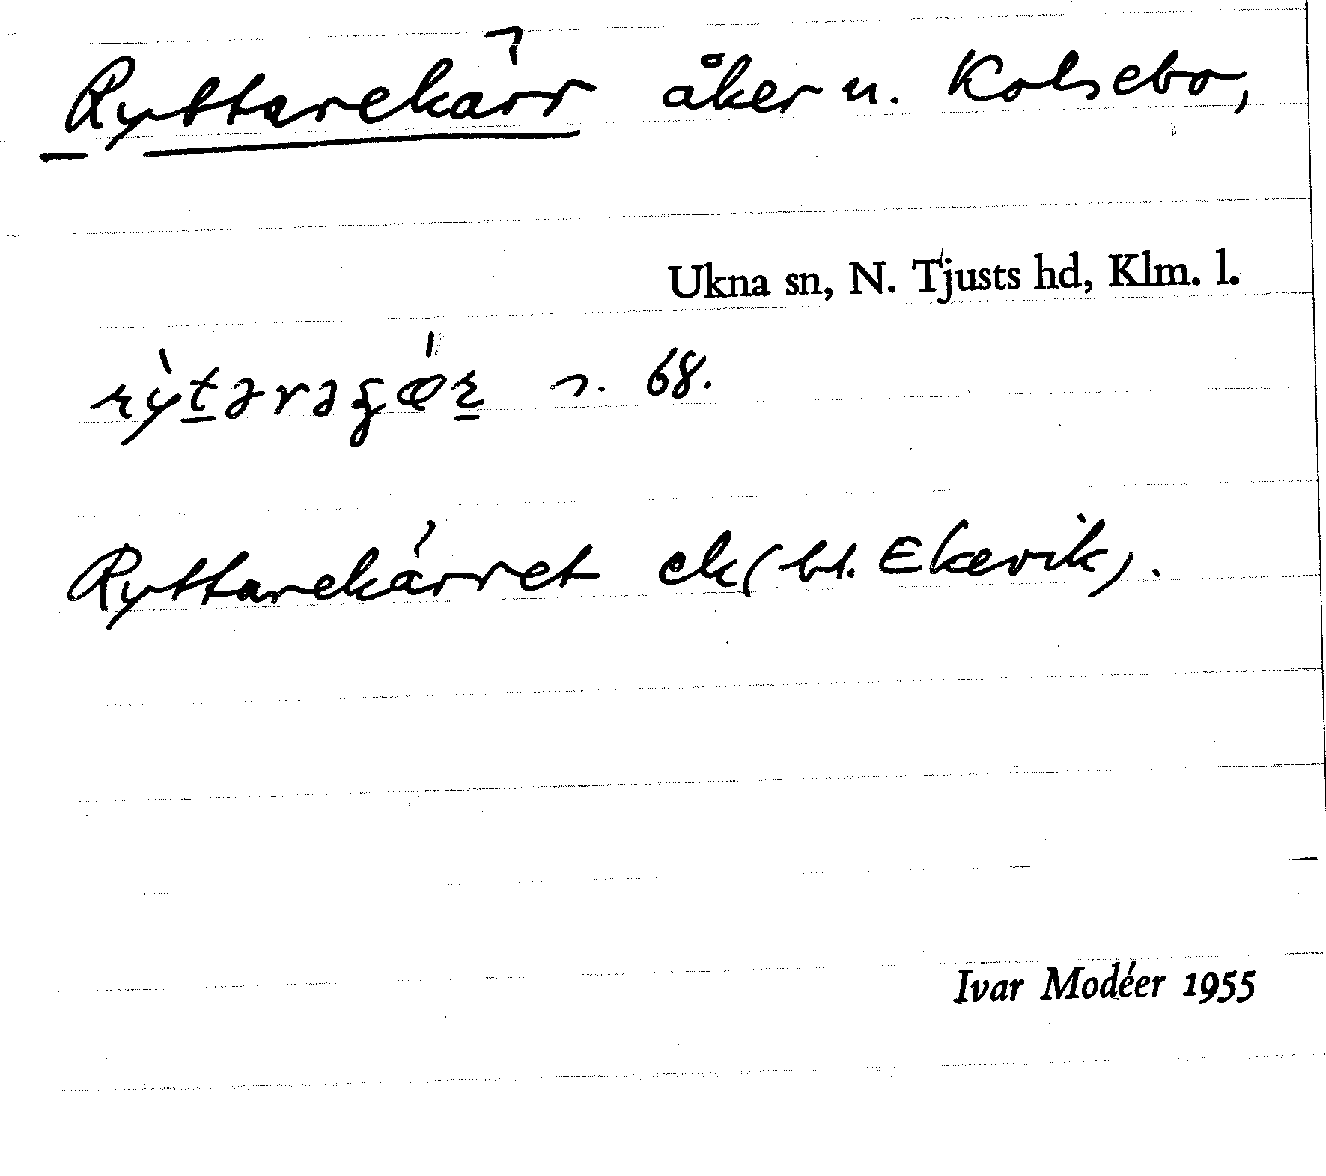 Ryttarekärr åker u. Kolsebo,
Ukna sn, N. Tjusts hd, Klm. l.
68.
Ryttarekärret ek (bl. Ekevik).
Ivar Modéer 1955